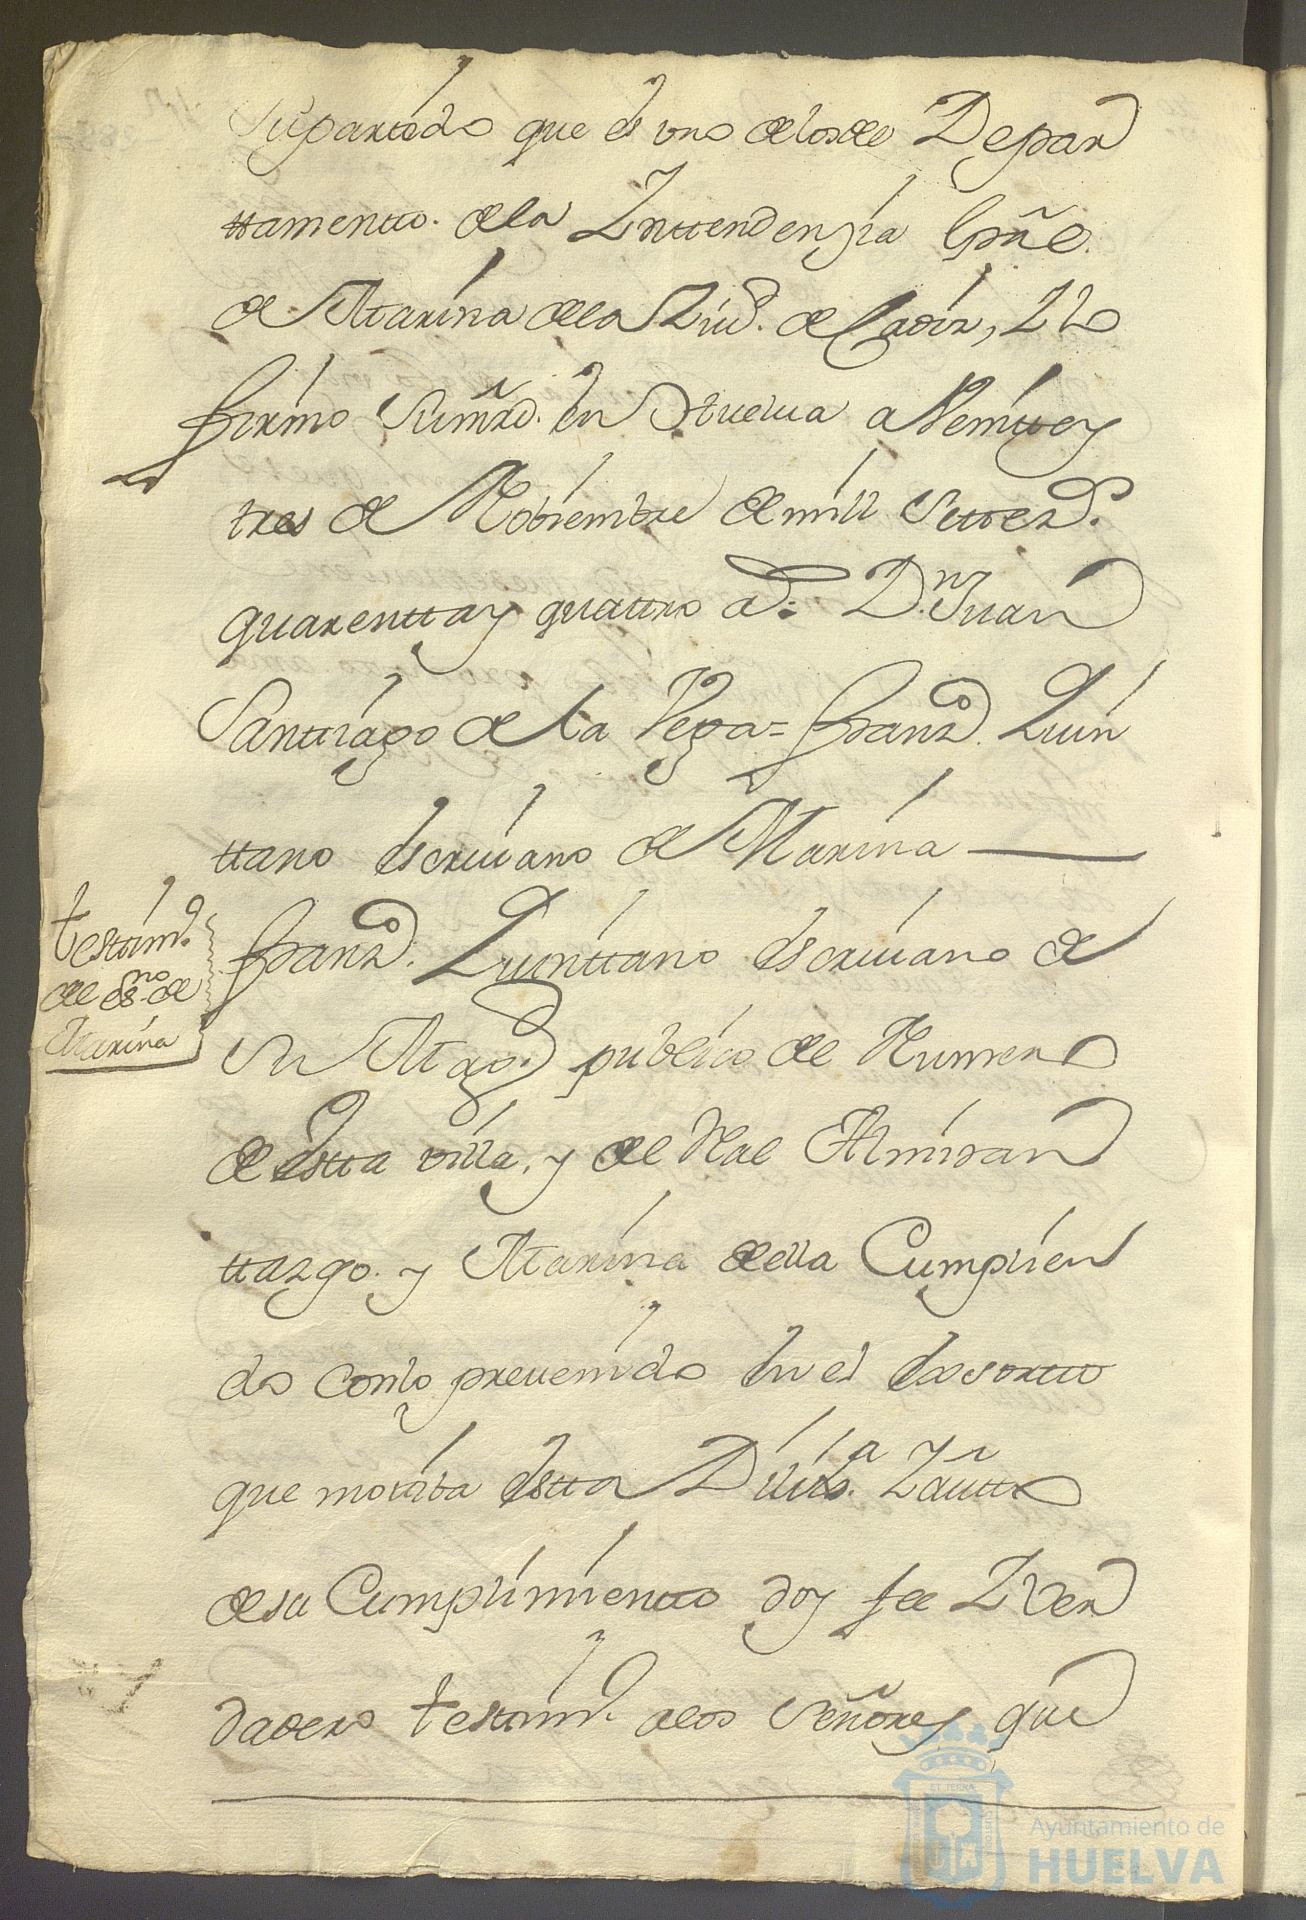 Supartido que es uno delosdel Depar
ttamentto. dela Ynttendenzia Grãl.
de Marina dela Ziud. de Cadiz, Y lo
firmo Sumrd. en Huelua a Veintte y
tres de Nobiembre de mill Settez.s
quarentta y quattro a.s D.n Juan
Santtiago de la Vega = Franz.co Quin
ttano Escriuano de Marina
testim.o
de Es.no de
Marina
Franz.co Quinttano Escriuano de
Su Mag.d publico del Numero
de Estta villa, y del Rl Almiran
ttazgo. y Marina della Cumplien
do conlo preuenido en el
que motiba Estta Dilix.a
desu Cumplimientto doy fee Y Ver
dadero testim.o alos Señores que
ET TERRA
Ayuntamiento de
HUELVA